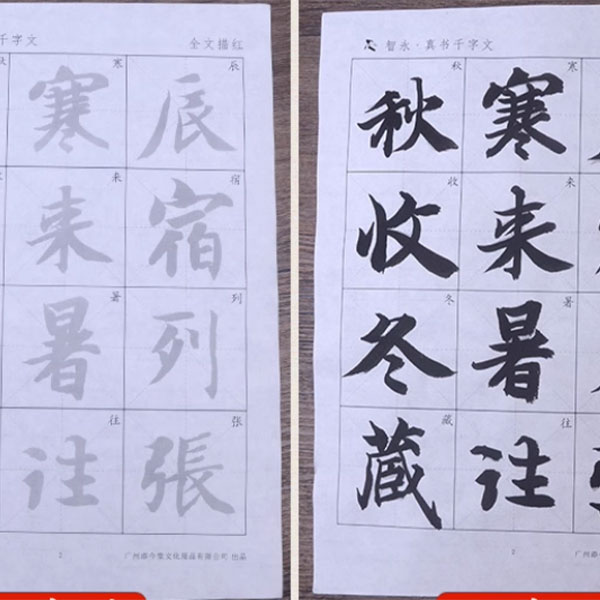 千字文
全文描红
辰宿列張
辰宿列張
寒来暑往
寒来暑往
2
文化用品有限公司 出品
智永·真书千字文
寒来暑往
寒来暑往
秋收冬藏
秋收冬藏
2
广州